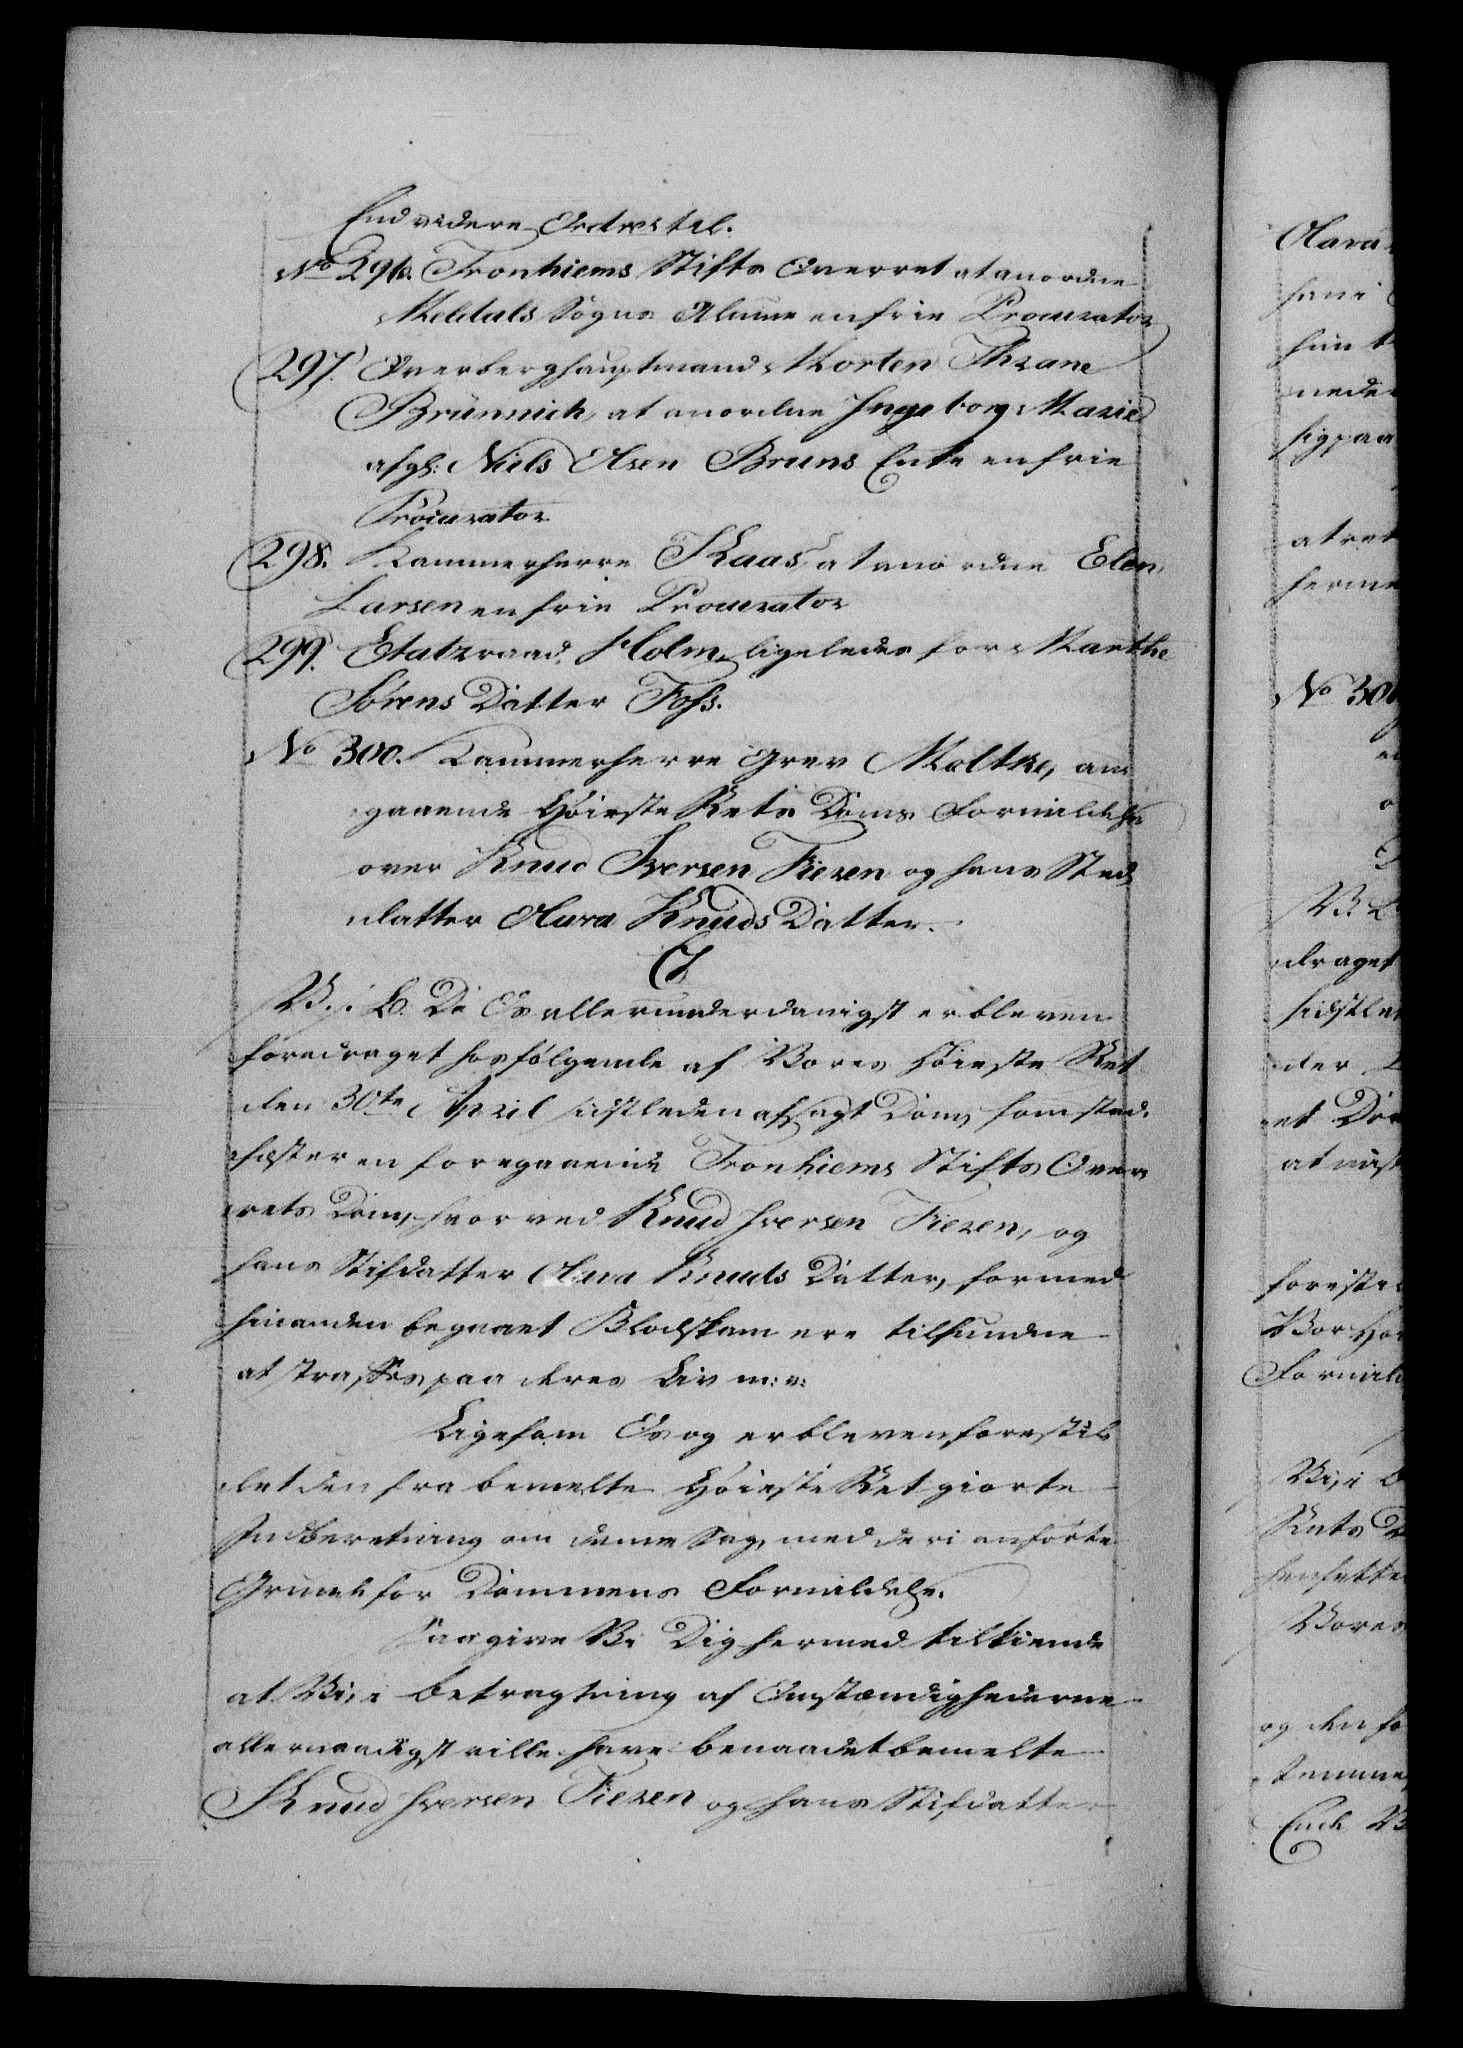 End videre Ordres til.
No 296. Tronhiems Stifts Overret at anordne
Meldals Sogns Almue en frie Procurator
297. Overberghauptmand Morten Thrane
Brünnich, at anordne Ingeborg Marie
afg: Niels Olsen Bruns Enke en frie
Procurator
298. Kammerherre Kaas, at anordne Elen
Larsen en frie Procurator
299. Etatzraad Holm, ligeledes for Marthe
Sörens Datter Foss.
No 300. Kammerherre Grev Moltke, an-
gaaende Höieste Rets Doms Formildelse
over Knud Iversen Fiezen og hans Sted-
datter Olava Knuds Datter.
V. i. B. Da Os allerunderdanigst er bleven
foredraget hosfölgende af Vores Höieste Ret
den 30te April sidstleden afsagt Dom, som stad-
fæster en foregaaende Tronhiems Stifts Over-
rets Dom, hvorved Knud Iversen Fiezen, og
hans Stifdatter Olava Knuds Datter, for med
hinanden begaaet Blodskam ere tilfundne
at straffes paa deres Liv m: v:
Ligesom Os og er bleven forestil-
let den fra bemelte Höieste Ret giorte
Indberetning om denne Sag, med deri anförte
Grunde for Dommens Formildelse.
Saa give Vi Dig hermed tilkiende
at Vi, i Betragtning af Omstændighederne
allernaadigst ville have benaadet bemelte
Knud Iversen Fiezen og hans Stifdatter
Olava
han i
hun
sig paa
at ret
herme
No 30
draget
sidstle
der
et Dom
forestil
Vor Hö
Formild
Vi, i
Rets
Vores
og den